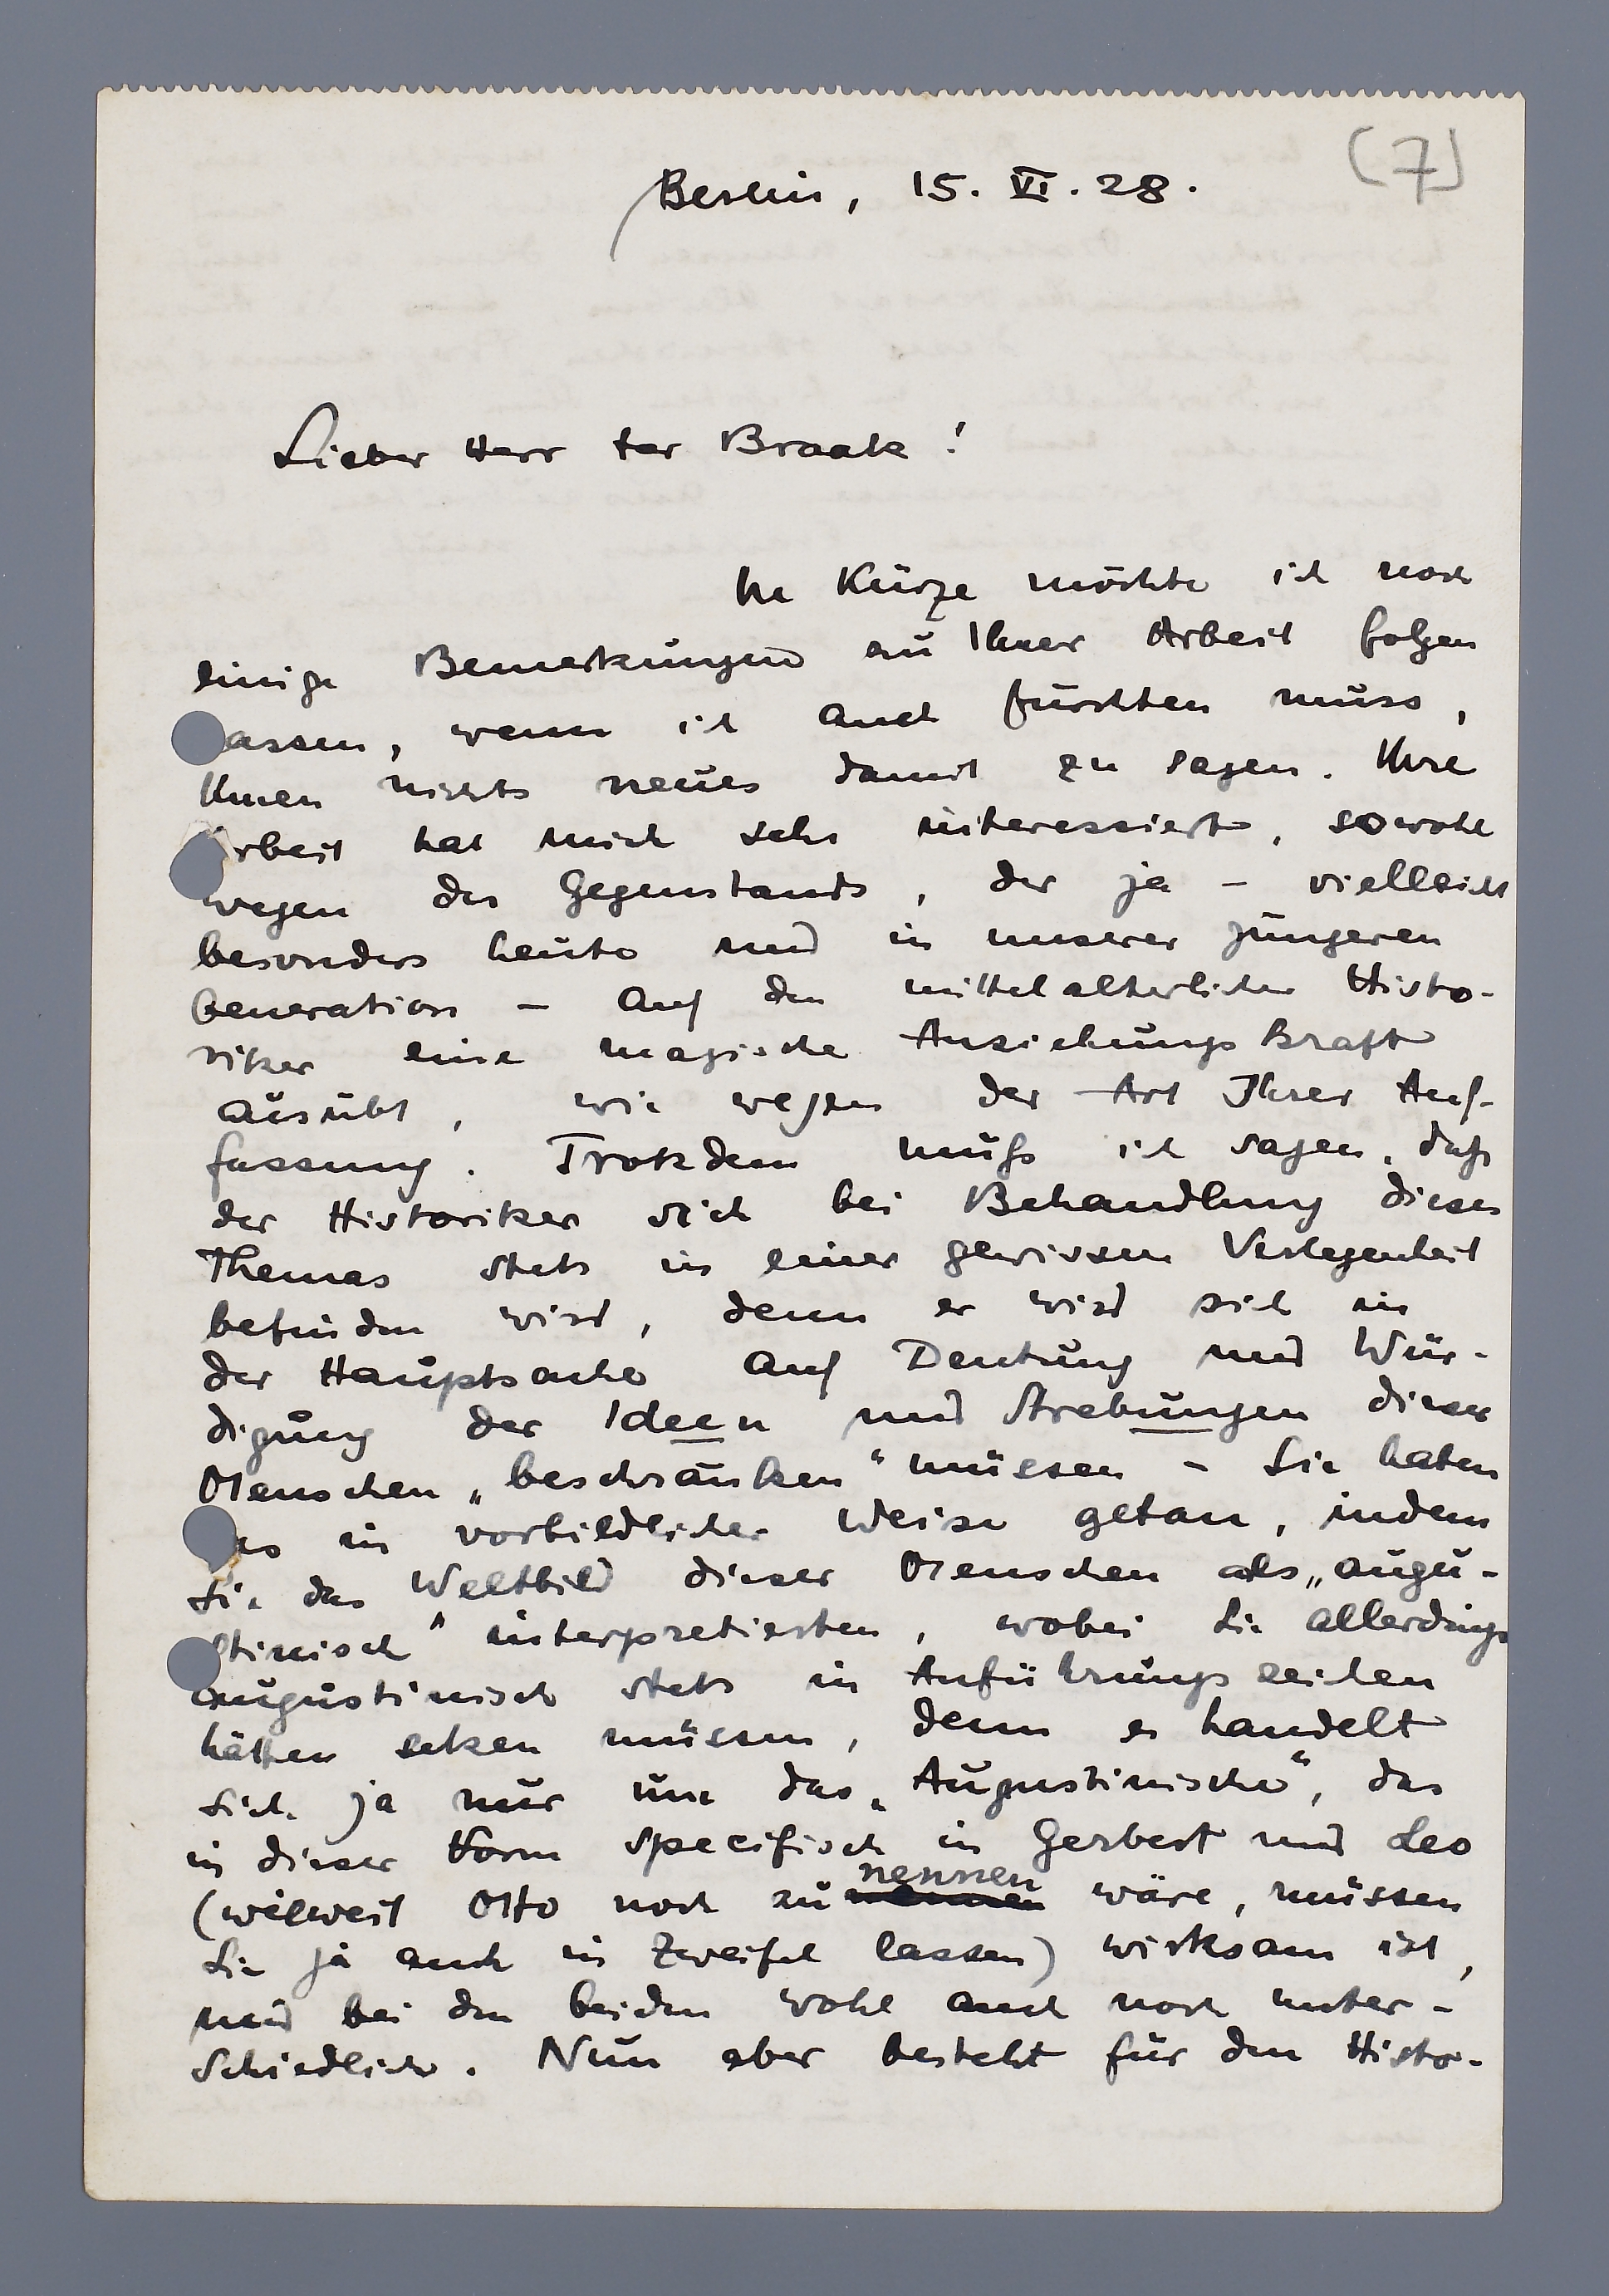 (7)
Berlin, 15. VI. 28.
Lieber Herr ter Braak!
In Kürze möchte ich noch
einige Bemerkungen zu Ihrer Arbeit folgen
assen, wenn ich auch fürchten muss,
Ihnen nichts neues damit zu sagen. Ihre
Arbeit hat mich sehr interessiert, sowohl
wegen des Gegenstands, der ja - vielleicht
besonders heute und in unserer jüngeren
Generation - auf den mittelalterlichen Histo-
riker eine magische Anziehungskraft
ausübt, wie wegen der Art Ihrer Auf-
fassung. Trotzdem muß ich sagen, daß
der Historiker sich bei Behandlung dieses
Themas stets in einer gewissen Verlegenheit
befinden wird, denn er wird sich in
der Hauptsache auf Deutung und Wür-
digung der Ideen und Strebungen dieser
Menschen „beschränken" müssen - Sie haben
as in vorbildlicher Weise getan, indem
Sie das Weltbild dieser Menschen als „augu-
stinisch" interpretierten, wobei Sie allerdings
augustinisch stets in Anführungszeichen
hätten setzen müssen, denn es handelt
sich ja nur um das „Augustinische", das
in dieser Form specifisch in Gerbert und Leo
(wieweit Otto noch zu nennen wäre, müssen
Sie ja auch in Zweifel lassen) wirksam ist,
und bei den beiden wohl auch noch unter-
schiedlich. Nun aber besteht für den Histo-